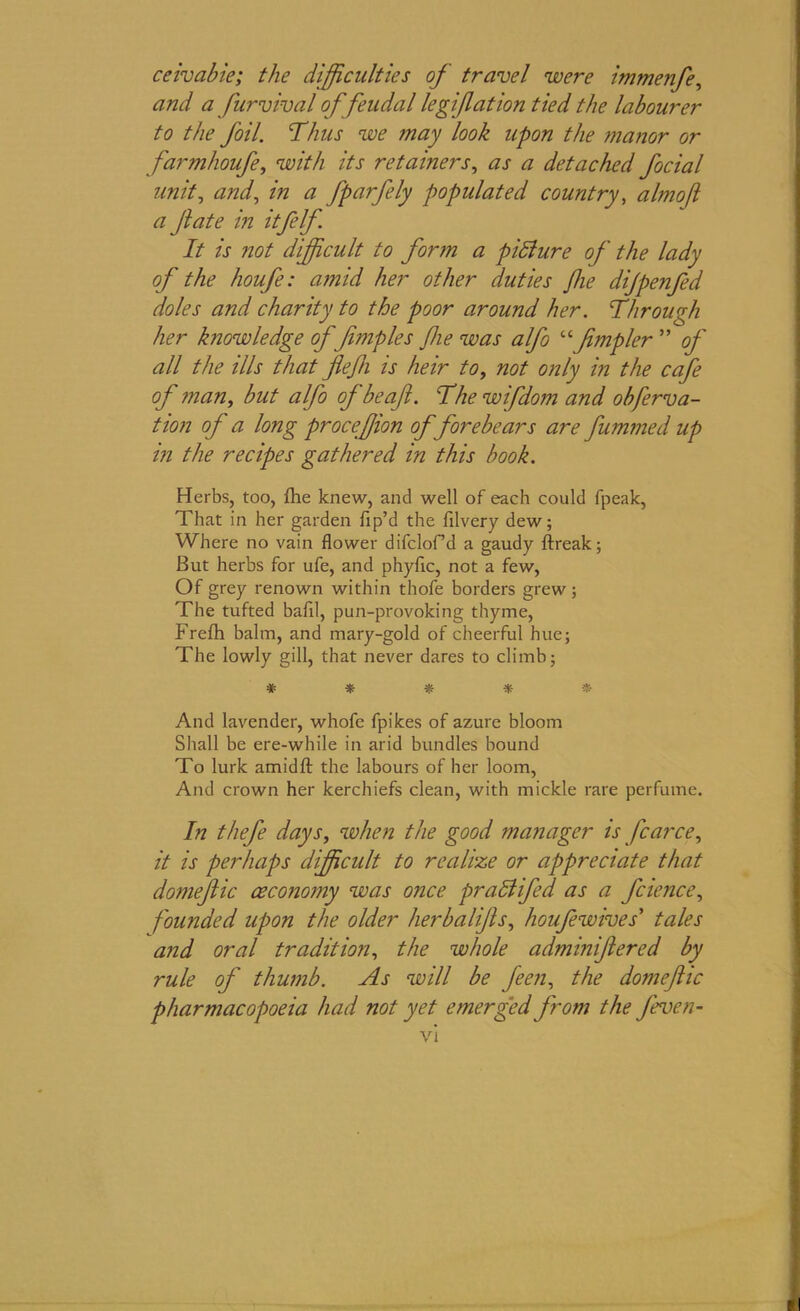 ceivable; the difficulties of travel were immenſe,
and a ſurvival of feudal legiſlation tied the labourer
to the ſoil. Thus we may look upon the manor or
farmhouſe, with its retainers, as a detached ſocial
unit, and, in a ſparſely populated country, almoſt
a ſtate in itſelf.
It is not difficult to form a picture of the lady
of the houſe: amid her other duties ſhe diſpenſed
doles and charity to the poor around her. Through
her knowledge of ſimples ſhe was alſo “ſimpler” of
all the ills that fleſh is heir to, not only in the caſe
of man, but alſo of beaſt. The wiſdom and obſerva-
tion of a long proceſſion of forebears are ſummed up
in the recipes gathered in this book.
Herbs, too, ſhe knew, and well of each could ſpeak,
That in her garden ſip’d the ſilvery dew;
Where no vain flower diſcloſ’d a gaudy ſtreak;
But herbs for uſe, and phyſic, not a few,
Of grey renown within thoſe borders grew;
The tufted baſil, pun-provoking thyme,
Freſh balm, and mary-gold of cheerful hue;
The lowly gill, that never dares to climb;
* * * * *
And lavender, whoſe ſpikes of azure bloom
Shall be ere-while in arid bundles bound
To lurk amidſt the labours of her loom,
And crown her kerchiefs clean, with mickle rare perfume.
In theſe days, when the good manager is ſcarce,
it is perhaps difficult to realize or appreciate that
domeſtic œconomy was once practiſed as a ſcience,
founded upon the older herbaliſts, houſewives’ tales
and oral tradition, the whole adminiſtered by
rule of thumb. As will be ſeen, the domeſtic
pharmacopoeia had not yet emerged from the ſeven-
vi